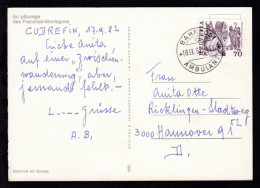 Au pâturage
des Franches-Montagnes
CUDREFIN, 17.9.82
Liebe Anita
auf einer "Zwischen-
wanderung, aber,
jemand fehlt.-
L.... Grüsse
A.B.
BAHN
AMBULANT
70
Frau
Anita Otte
Ricklingen-Stadtweg
52
3000 Hannover 91
D.